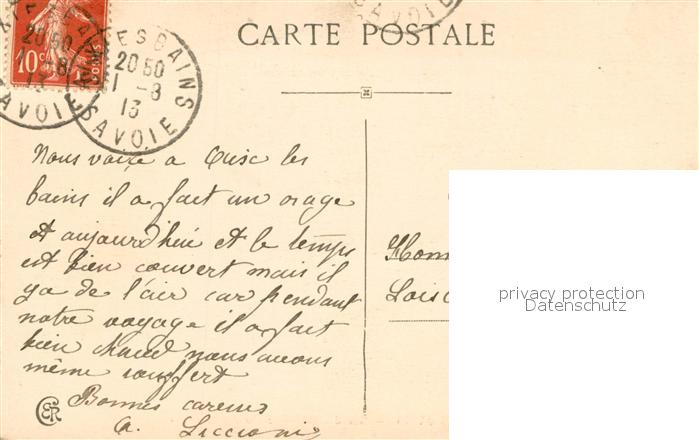 CARTE POSTALE
ES BAINS
20 50
1 -8
13
SAVOIE
20 50
13
SAVOIE
10c
Nous voici a Aix les
bains il a fait un orage
et aujourd'hui et le temps
est bien couvert mais il
ya de l'air car pendant
notre voyage il a fait
bien chaud nous avons
même souffert
Bonnes caresses
A.
CER
privacy protection
Datenschutz